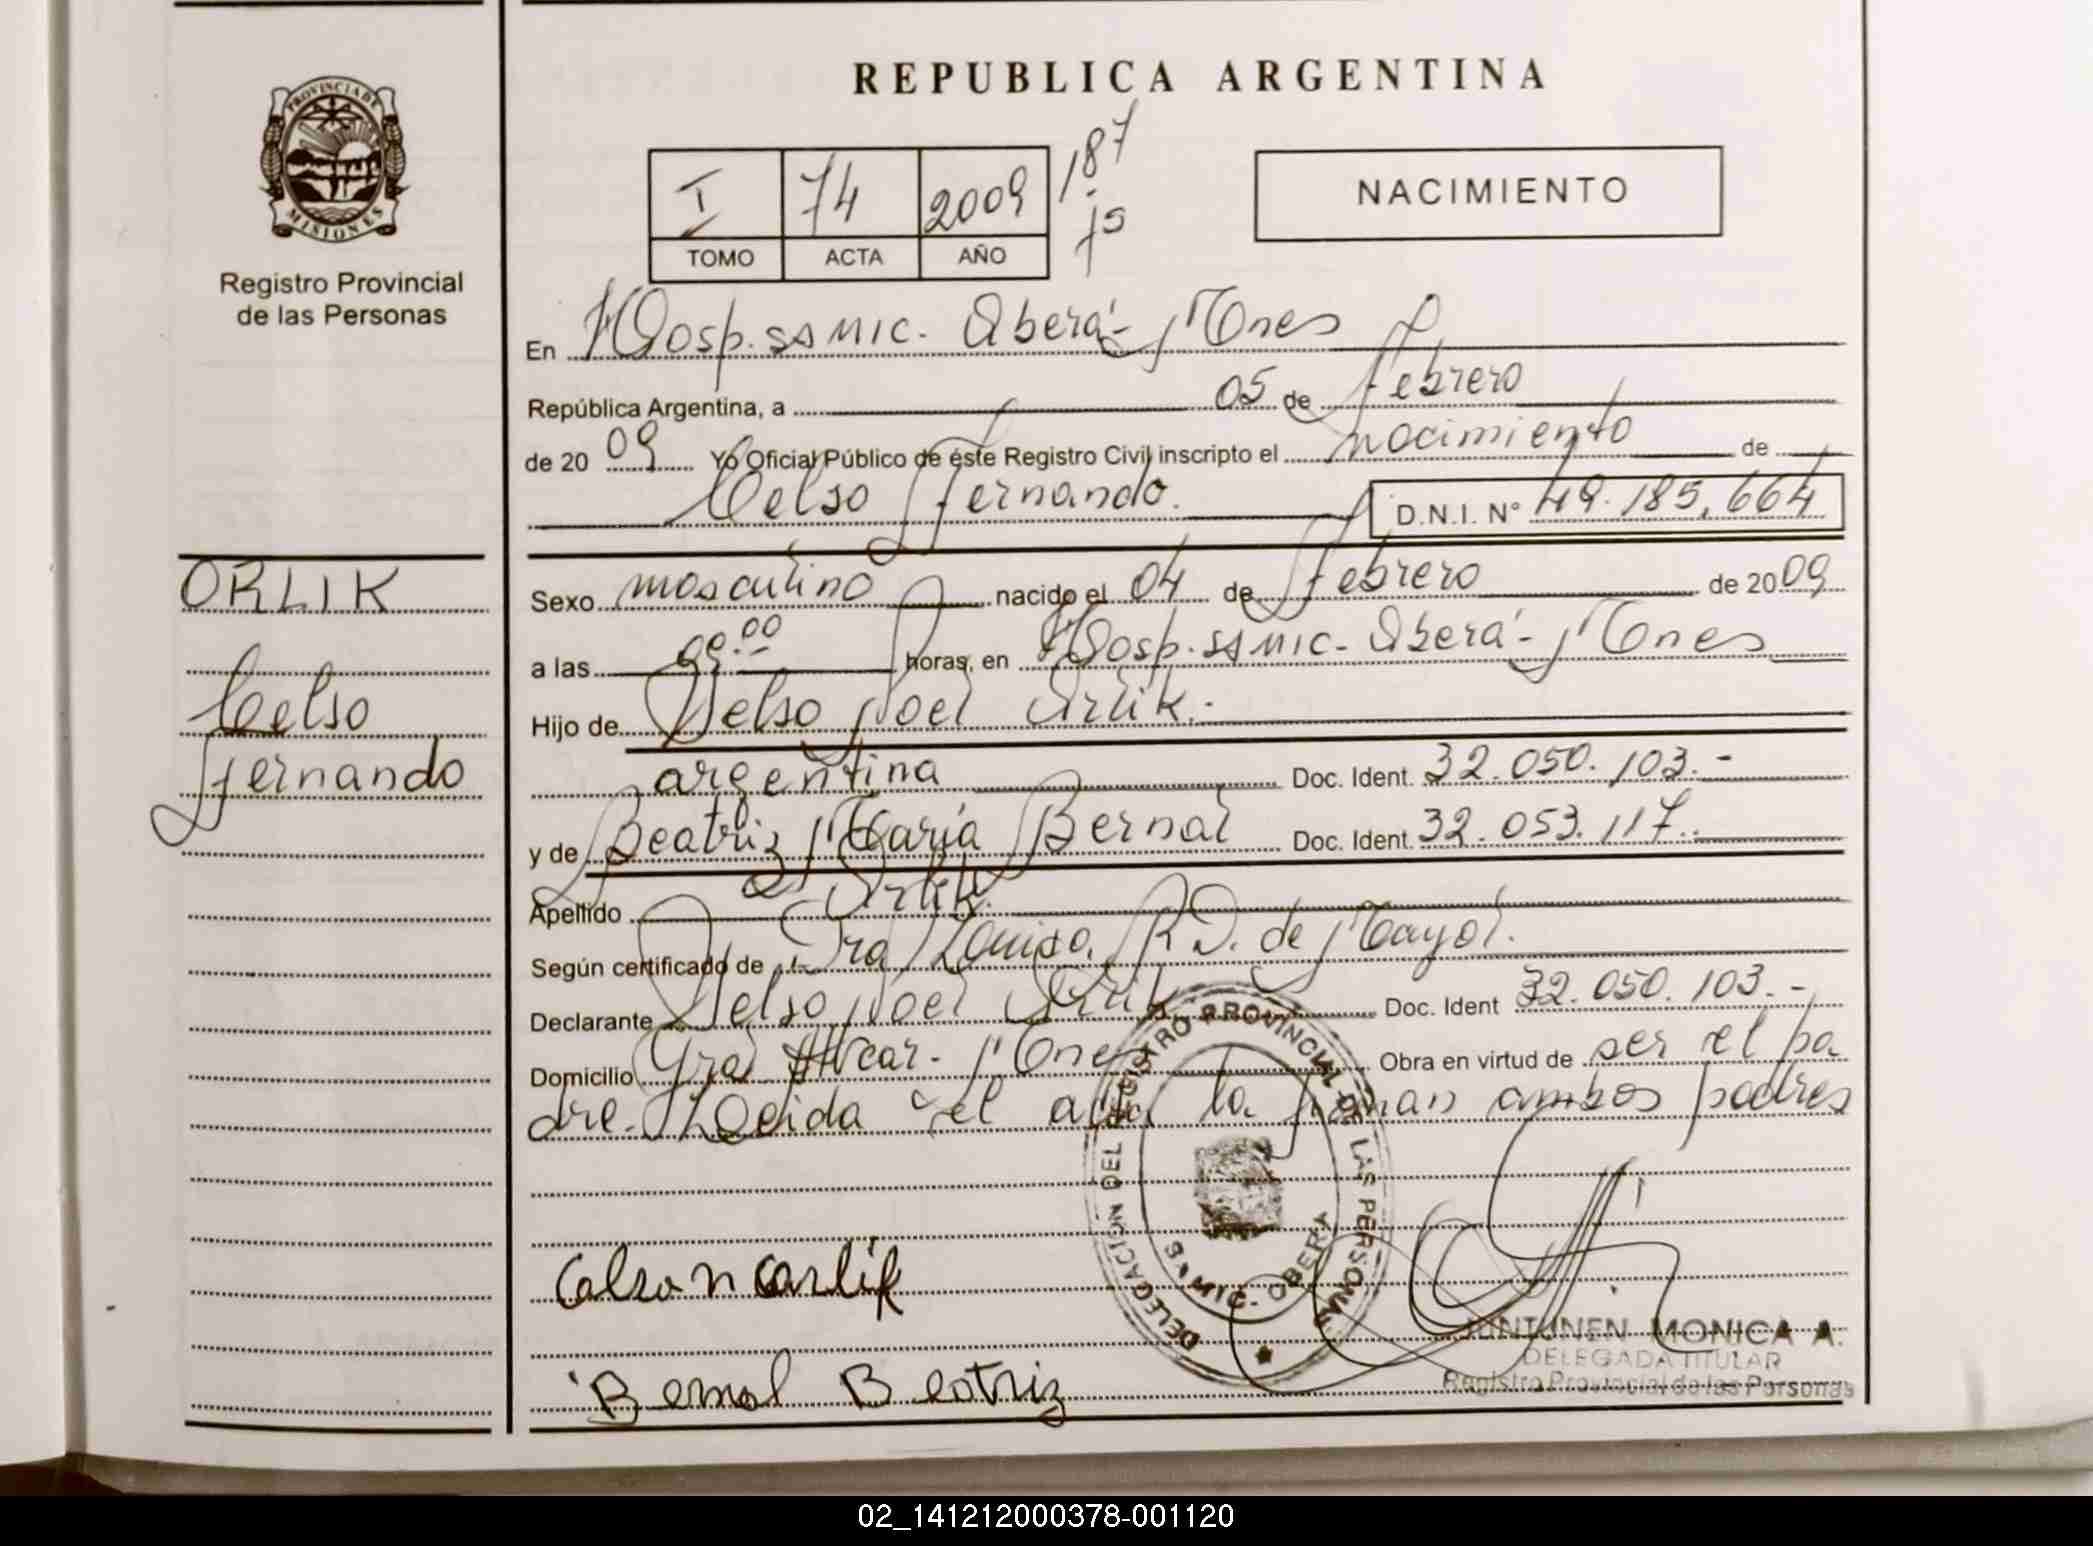 REPUBLICA ARGENTINA
PROVINCIA DE
MISIONES
Registro Provincial
de las Personas
I 74 2009 187
TOMO ACTA AÑO
NACIMIENTO
En Hosp. SAMIC. Oberá - Mnes
República Argentina, a 05 de febrero
de 2009 Yo Oficial Público de éste Registro Civil inscripto el nacimiento de
Celso Fernando. D.N.I. N° 49.185.664
ORLIK
Celso
Fernando
Sexo masculino nacido el 04 de febrero de 2009
a las 09:00 horas, en Hosp. SAMIC - Oberá - Mones
Hijo de Celso Noel Orlik.-
argentina Doc. Ident. 32.050.103.-
y de Beatriz María Bernal Doc. Ident. 32.053.117.
Apellido Orlik.
Según certificado de Dra R.D. de Mayol.
Declarante Celso Noel Orlik Doc. Ident 32.050.103.-
Domicilio Gral Alvear - Mones Obra en virtud de ser el pa
dre. Leida el acta la firman ambos padres
DELEGACION DEL REGISTRO PROVINCIAL DE LAS PERSONAS
SAMIC. OBERA
Celso n orlik
Bernal Beatriz
JUNTUNEN MONICA A.
DELEGADA TITULAR
Registro Provincial de las Personas
02_141212000378-001120